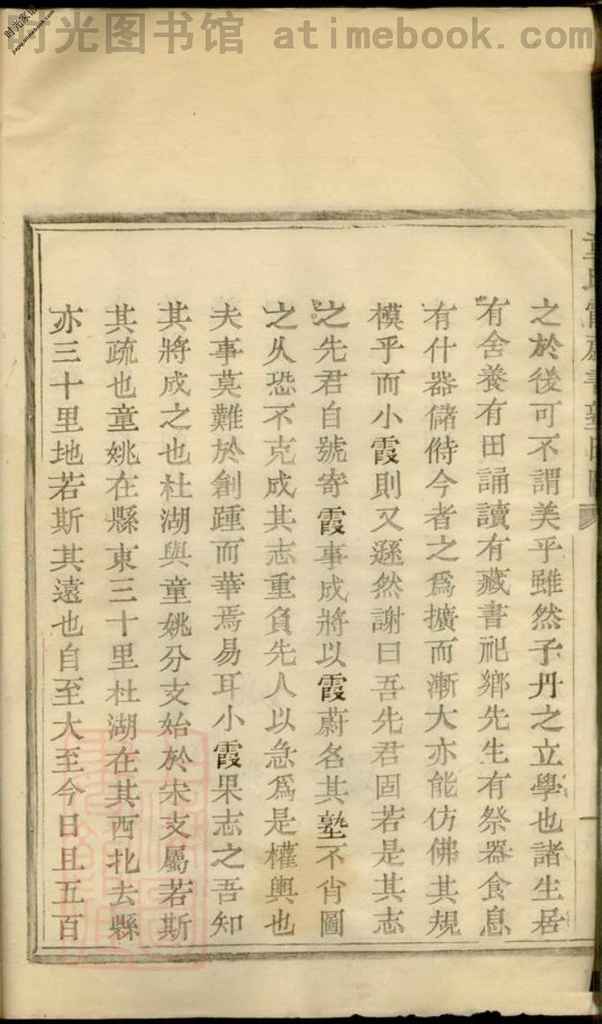 时光图书馆 atimebook.com
之於後可不謂美乎雖然子丹之立學也諸生居
有舍養有田誦讀有藏書祀鄉先生有祭器食息
有什器儲偫今者之爲擴而漸大亦能仿佛其規
模乎而小霞則又遜然謝曰吾先君固若是其志
之先君自號寄霞事成將以霞蔚名其塾不肖圖
之久恐不克成其志重負先人以急爲是權輿也
夫事莫難於創踵而華焉易耳小霞果志之吾知
其將成之也杜湖與童姚分支始於宋支屬若斯
其疏也童姚在縣東三十里杜湖在其西北去縣
亦三十里地若斯其遠也自至大至今日且五百